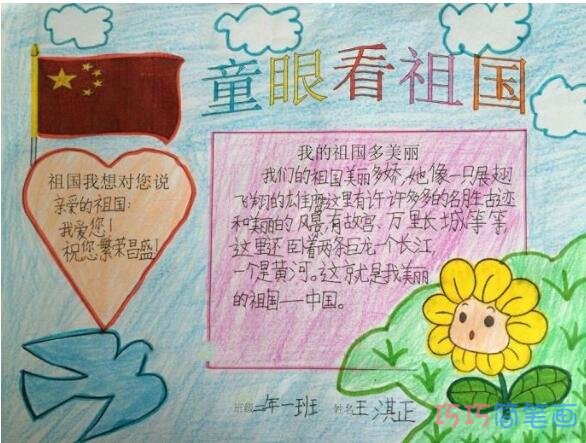 童眼看祖国
祖国我想对您说
亲爱的祖国:
我爱您!
祝您繁荣昌盛!
我的祖国多美丽
我们的祖国美丽多娇,她像一只展翅
飞翔的雄鹰这里有许许多多的名胜古迹
和美丽的风景,有故宫、万里长城等等
这里还卧着两条巨龙一个长江,
一个是黄河。这就是我美丽
的祖国——中国。
班级二年一班 姓名王淇正
巧巧简笔画